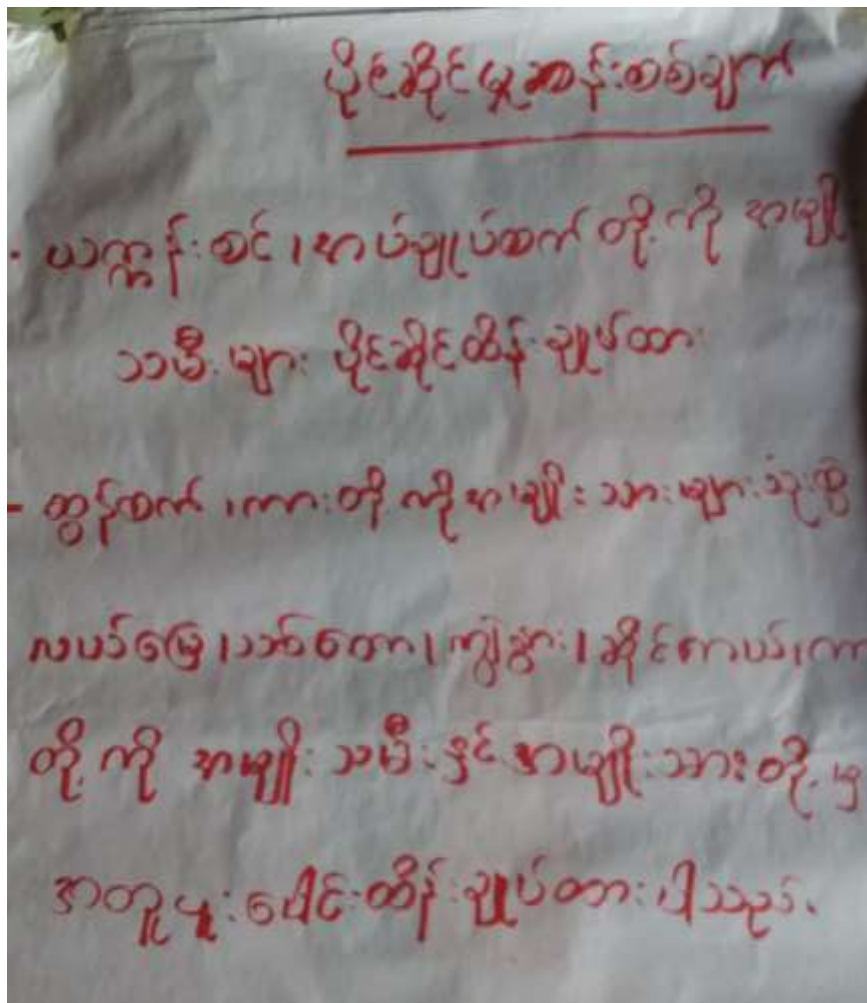 ပိုင်ဆိုင်မှုဆန်းစစ်ချက်
- ယက္ကန်းစင်၊ အပ်ချုပ်စက် တို့ကို အမျိုး
သမီးများ ပိုင်ဆိုင်ထိန်းချုပ်ထား
- ထွန်စက်၊ ကားတို့ကို အမျိုးသားများ သုံးစွဲ
လယ်မြေ၊ သစ်တော၊ ကျွဲနွား၊ ဆိုင်ကယ်၊ ကာ
တို့ကို အမျိုးသမီးနှင့် အမျိုးသားတို့ မှ
အတူပူးပေါင်းထိန်းချုပ်ထားပါသည်။